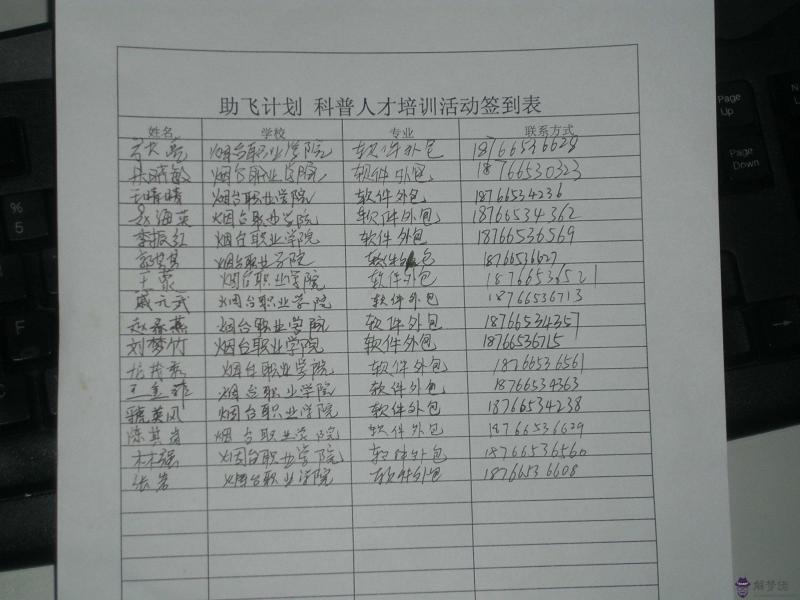 助飞计划 科普人才培训活动签到表
姓名 学校 专业 联系方式
烟台职业学院 软件外包 18766536628
晓敏 烟台职业学院 软件外包 18766530323
王晴晴 烟台职业学院 软件外包 18766534236
赵海英 烟台职业学院 软件外包 18766534362
李振红 烟台职业学院 软件外包 18766536569
烟台职业学院 软件外包 18766536627
王蒙 烟台职业学院 软件外包 18766536521
戚元武 烟台职业学院 软件外包 18766536713
赵春燕 烟台职业学院 软件外包 18766534357
刘梦竹 烟台职业学院 软件外包 18766536715
烟台职业学院 软件外包 18766536561
王金菲 烟台职业学院 软件外包 18766534363
英风 烟台职业学院 软件外包 18766534238
陈其尚 烟台职业学院 软件外包 18766536629
林强 烟台职业学院 软件外包 18766536560
张岩 烟台职业学院 软件外包 18766536608
Page Up
Page Down
%
5
F
解梦佬